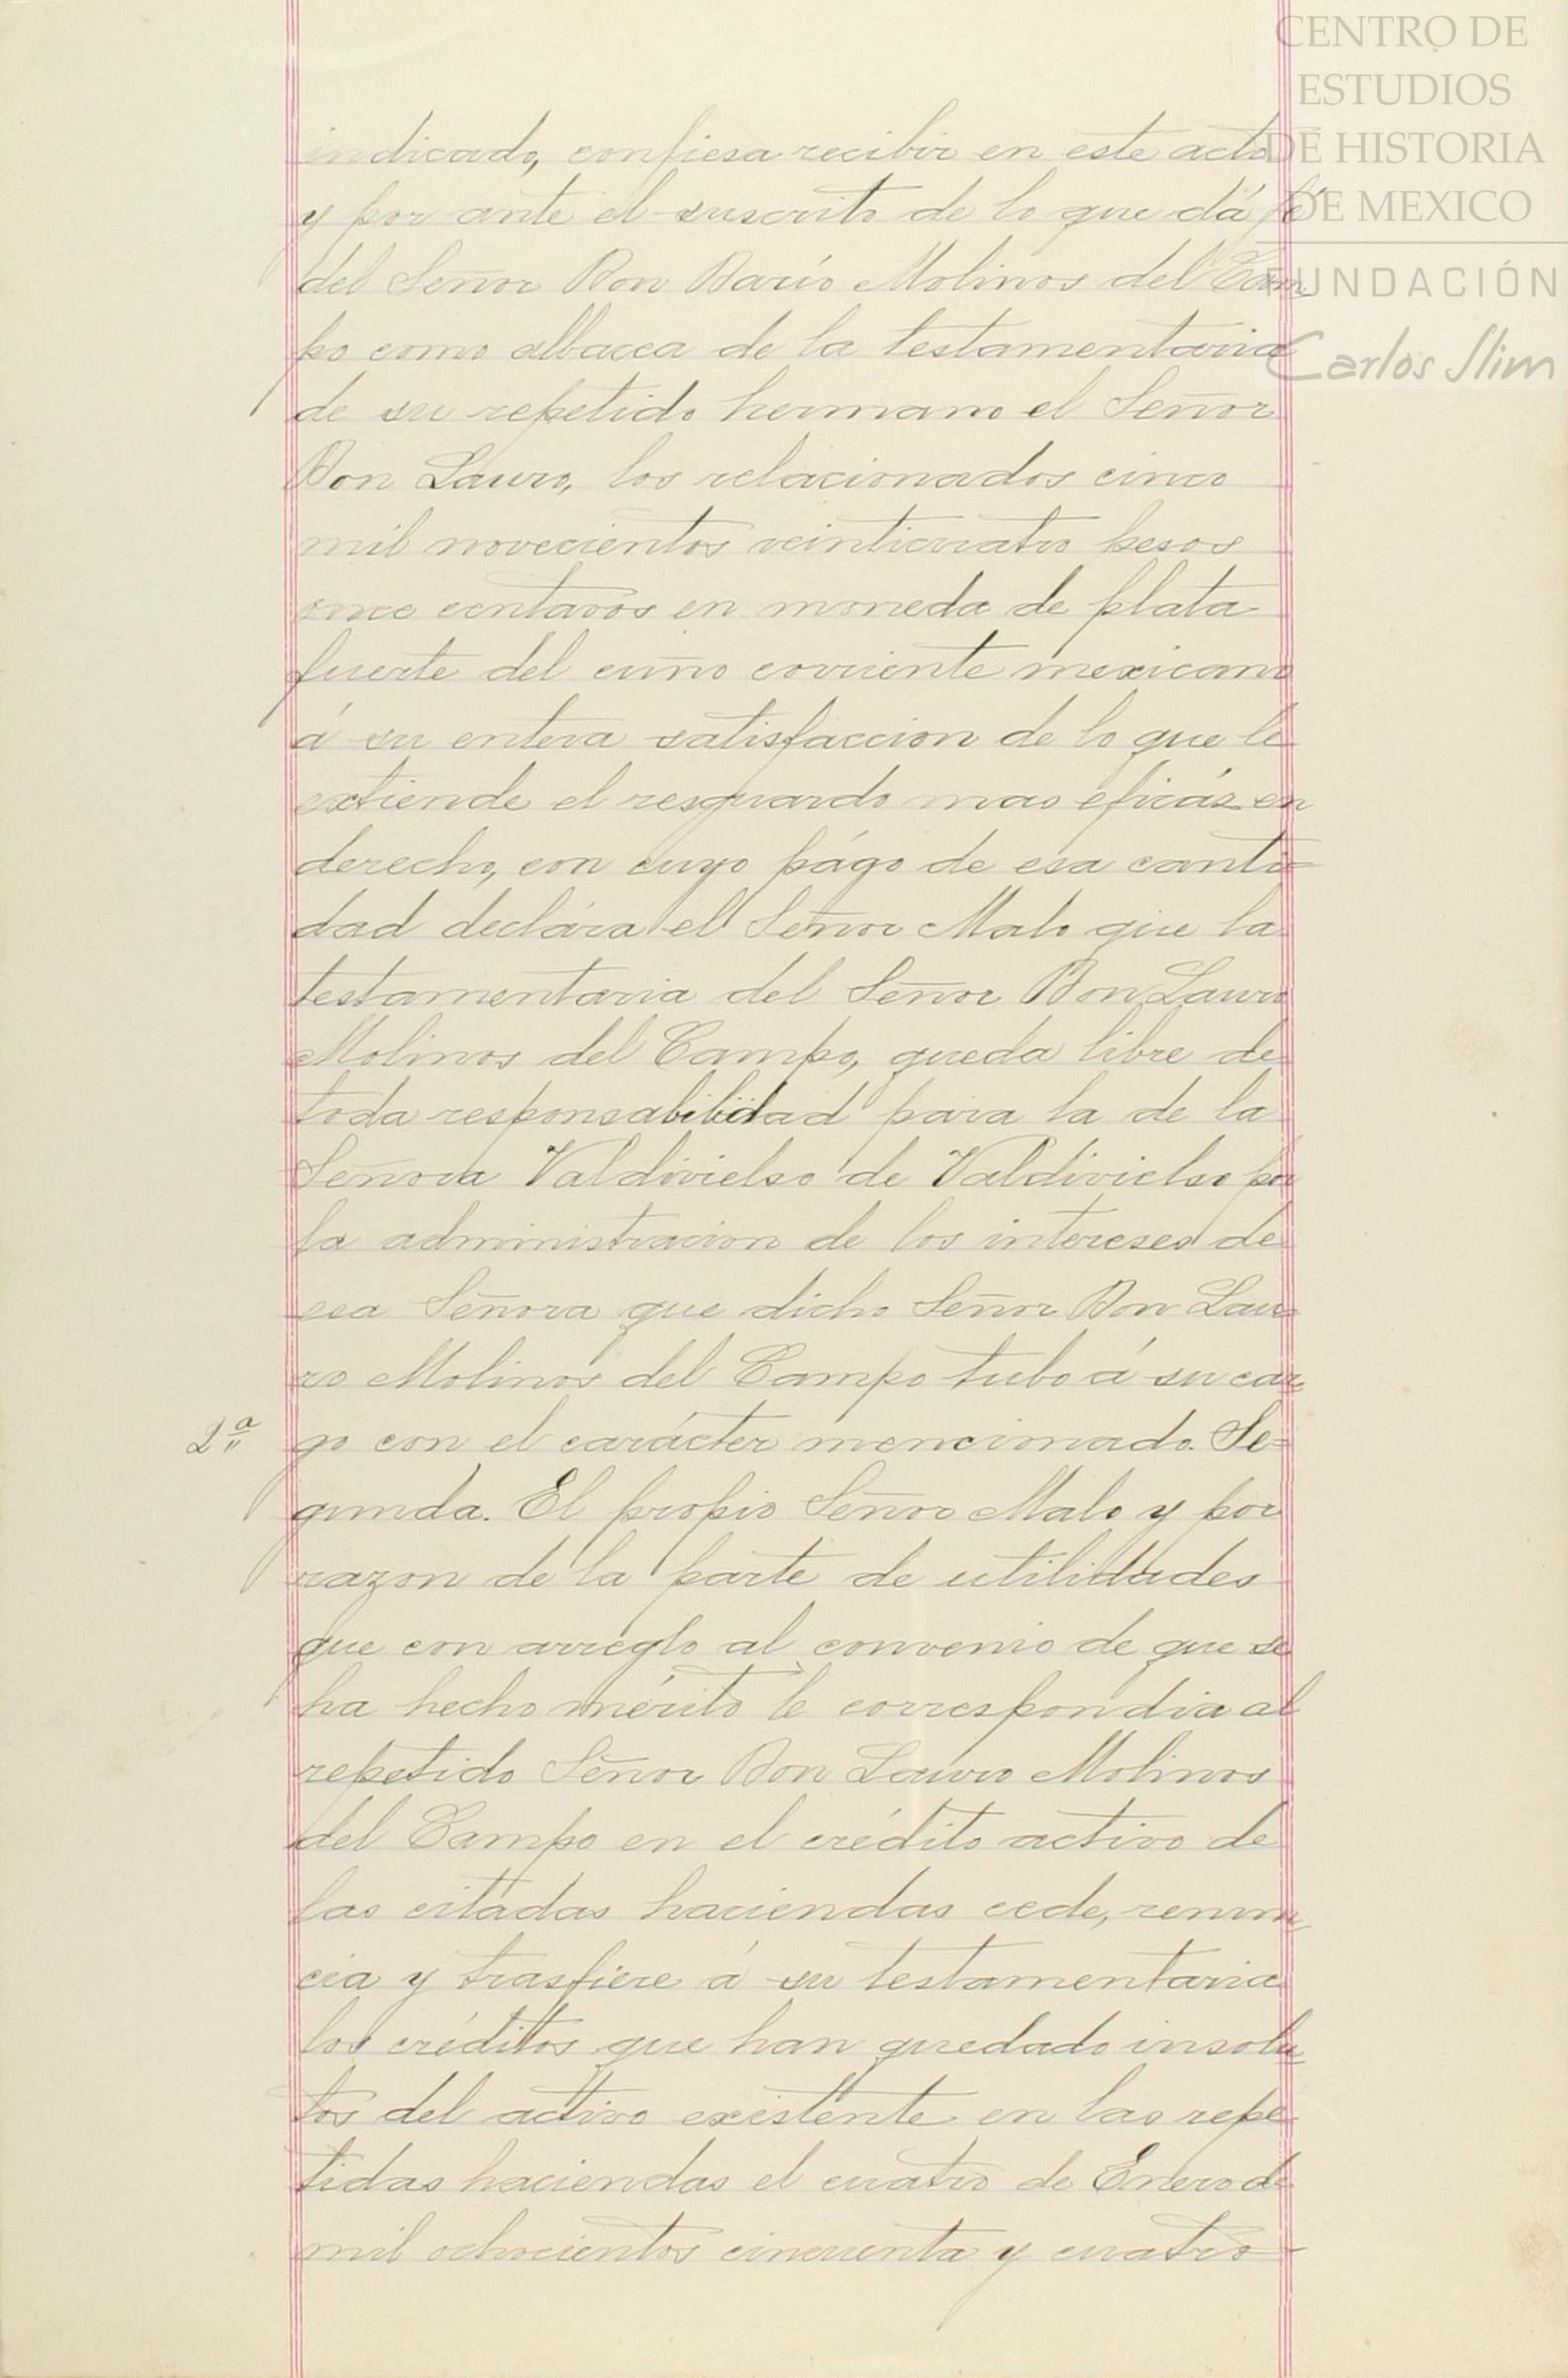 CENTRO DE
ESTUDIOS
DE HISTORIA
DE MEXICO
FUNDACIÓN
Carlos Slim
indicado, confiesa recibir en este acto
y por ante el suscrito de lo que dá fé
del Señor Don Darío Molinos del Cam
po como albacea de la testamentaria
de su repetido hermano el Señor
Don Lauro, los relacionados cinco
mil novecientos veinticuatro pesos
once centavos en moneda de plata
fuerte del cuño corriente mexicano
á su entera satisfaccion de lo que le
extiende el resguardo mas eficáz en
derecho, con cuyo págo de esa canti=
dad declára el Señor Malo que la
testamentaria del Señor Don Lauro
Molinos del Campo, queda libre de
toda responsabilidad para la de la
Señora Valdivielso de Valdivielso por
la administracion de los intereses de
esa Señora que dicho Señor Don Lau=
ro Molinos del Campo tubo á su car=
2ª go con el carácter mencionado. Se=
gunda. El propio Señor Malo y por
razon de la parte de utilidades
que con arreglo al convenio de que se
ha hecho mérito le correspondia al
repetido Señor Don Lauro Molinos
del Campo en el crédito activo de
las citadas haciendas cede, renun=
cia y trasfiere á su testamentaria
los créditos que han quedado insolu=
tos del activo existente en las repe
tidas haciendas el cuatro de Enero de
mil ochocientos cincuenta y cuatro